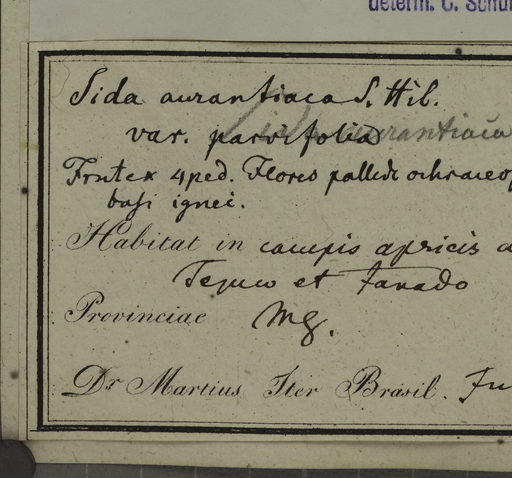 determ. C. Schu
Sida aurantiaca S. Hil.
var. parvifolia
Sida aurantiaca
Frutex 4 ped. Flores pallide ochraceo
basi ignei.
Habitat in campis apricis
Tejuco et Fanado
Provinciae MG.
Dr Martius Iter Brasil. Ju